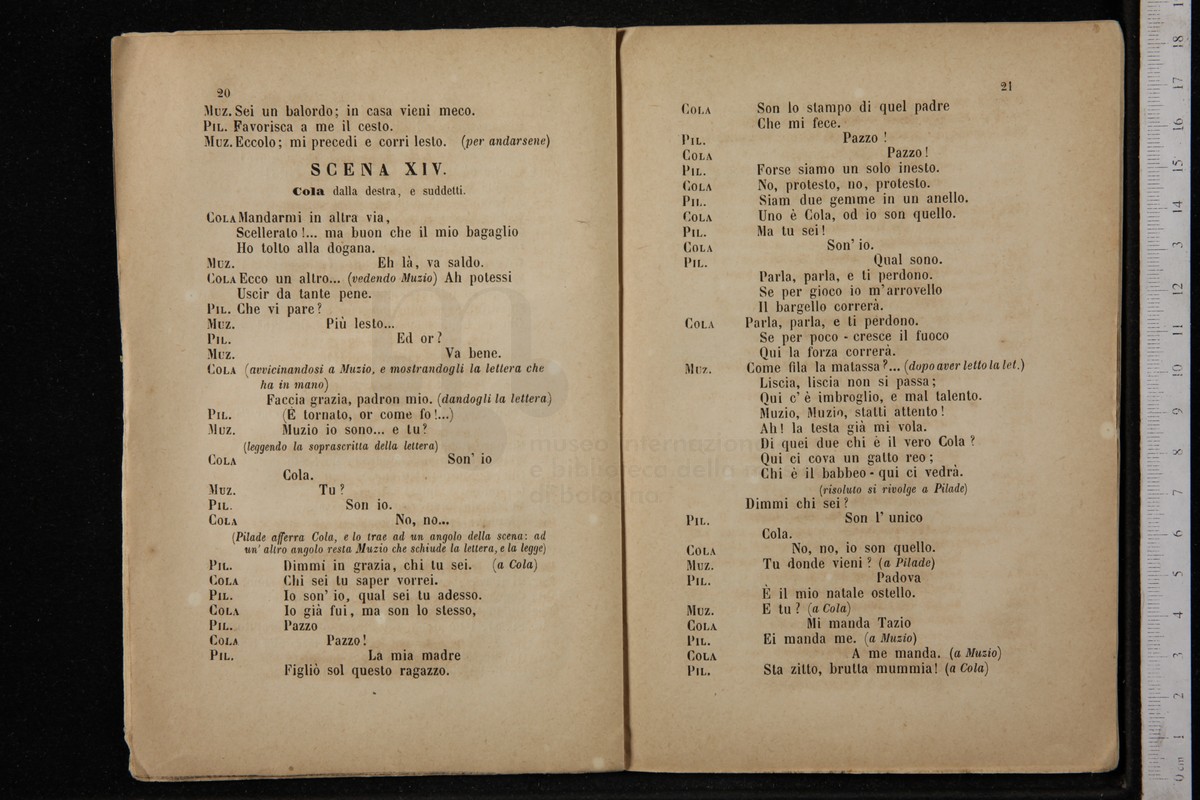 20
Muz. Sei un balordo; in casa vieni meco.
Pil. Favorisca a me il cesto.
Muz. Eccolo; mi precedi e corri lesto. (per andarsene)
SCENA XIV.
Cola dalla destra, e suddetti.
Cola Mandarmi in altra via,
Scellerato!... ma buon che il mio bagaglio
Ho tolto alla dogana.
Muz. Eh là, va saldo.
Cola Ecco un altro... (vedendo Muzio) Ah potessi
Uscir da tante pene.
Pil. Che vi pare?
Muz. Più lesto...
Pil. Ed or?
Muz. Va bene.
Cola (avvicinandosi a Muzio, e mostrandogli la lettera che
ha in mano)
Faccia grazia, padron mio. (dandogli la lettera)
Pil. (È tornato, or come fo!...)
Muz. Muzio io sono... e tu?
(leggendo la soprascritta della lettera)
Cola Son' io
Cola.
Muz. Tu?
Pil. Son io.
Cola No, no...
(Pilade afferra Cola, e lo trae ad un angolo della scena: ad
un' altro angolo resta Muzio che schiude la lettera, e la legge)
Pil. Dimmi in grazia, chi tu sei. (a Cola)
Cola Chi sei tu saper vorrei.
Pil. Io son' io, qual sei tu adesso.
Cola Io già fui, ma son lo stesso,
Pil. Pazzo
Cola Pazzo!
Pil. La mia madre
Figliò sol questo ragazzo.
21
Cola Son lo stampo di quel padre
Che mi fece.
Pil. Pazzo!
Cola Pazzo!
Pil. Forse siamo un solo inesto.
Cola No, protesto, no, protesto.
Pil. Siam due gemme in un anello.
Cola Uno è Cola, od io son quello.
Pil. Ma tu sei!
Cola Son' io.
Pil. Qual sono.
Parla, parla, e ti perdono.
Se per gioco io m'arrovello
Il bargello correrà.
Cola Parla, parla, e ti perdono.
Se per poco - cresce il fuoco
Qui la forza correrà.
Muz. Come fila la matassa?... (dopo aver letto la let.)
Liscia, liscia non si passa;
Qui c'è imbroglio, e mal talento.
Muzio, Muzio, statti attento!
Ah! la testa già mi vola.
Di quei due chi è il vero Cola?
Qui ci cova un gatto reo;
Chi è il babbeo - qui ci vedrà.
(risoluto si rivolge a Pilade)
Dimmi chi sei?
Pil. Son l' unico
Cola.
Cola No, no, io son quello.
Muz. Tu donde vieni? (a Pilade)
Pil. Padova
È il mio natale ostello.
Muz. E tu? (a Cola)
Cola Mi manda Tazio
Pil. Ei manda me. (a Muzio)
Cola A me manda. (a Muzio)
Pil. Sta zitto, brutta mummia! (a Cola)
museo internazion
e biblioteca della m
di bologna
0 cm 1 2 3 4 5 6 7 8 9 10 11 12 13 14 15 16 17 18